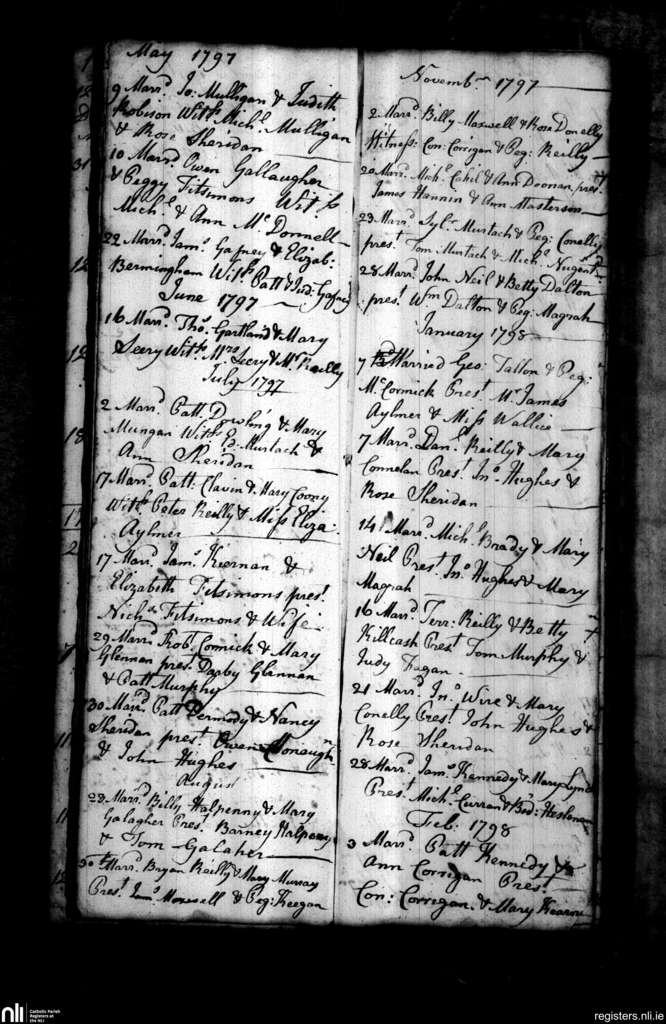 May 1797
9 Marrd. Jo: Mulligan & Judith
Robison Wits. Michl. Mulligan
& Rose Sheridan
10 Marrd. Owen Gallaugher
& Peggy Fitsimons Wits.
Michl. & Ann Mc.Donnell
22 Marrd. Jams. Gafney & Elizab:
Bermingham Wits. Patt & Jud: Gafney
June 1797
16 Marrd. Thos. Gartland & Mary
Seery Wits. Mrs. Seery & Mr. Reilly
July 1797
2 Marrd. Patt. Dowling & Mary
Mungan Wits. Ed. Murtach &
Ann Sheridan
17 Marrd. Patt. Clavin & Mary Coony
Wits. Peter Reilly & Miss Eliza:
Aylmer
17 Marrd. Jams. Kiernan &
Elizabeth Fitsimons prest.
Nichs. Fitsimons & Wife
29 Marrd. Rob. Cormick & Mary
Glennan prest. Darby Glennan
& Patt Murphy
30 Marrd. Patt Dermody & Nancy
Sheridan prest. Owen Monaugh
& John Hughes
August
28 Marrd. Billy Halpenny & Mary
Galagher Prest. Barney Halpenny
& Tom Galaher
30 Marrd. Bryan Reilly & Mary Murray
Prest. Jams. Maxwell & Peg: Keegan
Novembr. 1797
2 Marrd. Billy Maxwell & Rose Donelly
Witness: Con: Corrigan & Peg: Reilly
20 Marrd. Michl. Cahil & Ann Doonan prest.
James Hannin & Ann Masterson
23 Marrd. Sylr. Murtach & Peg: Conelly
prest. Tom: Murtach & Michl. Nugent
28 Marrd. John Neil & Betty Dalton
prest. Wm. Dalton & Peg: Magrah
January 1798
7 Married Geo: Tallon & Peg:
Mc.Cormick Prest. Mr. James
Aylmer & Miss Wallice
7 Marrd. Danl. Reilly & Mary
Connelan Prest. Jno. Hughes &
Rose Sheridan
14 Marrd. Michl. Brady & Mary
Neil Prest. Jno. Hughes & Mary
Magrah
16 Marrd. Terr: Reilly & Betty
Killcash Prest. Tom Murphy &
Judy Fagan
21 Marrd. Jno. Wire & Mary
Conelly Prest. John Hughes &
Rose Sheridan
28 Marrd. Jams. Kennedy & Mary Lynd
Prest. Michl. Curran & Bid: Heslenan
Feb: 1798
3 Marrd. Patt Kennedy &
Ann Corrigan Prest.
Con: Corrigan & Mary Kearney
nli
Catholic Parish
Registers at
the NLI
registers.nli.ie